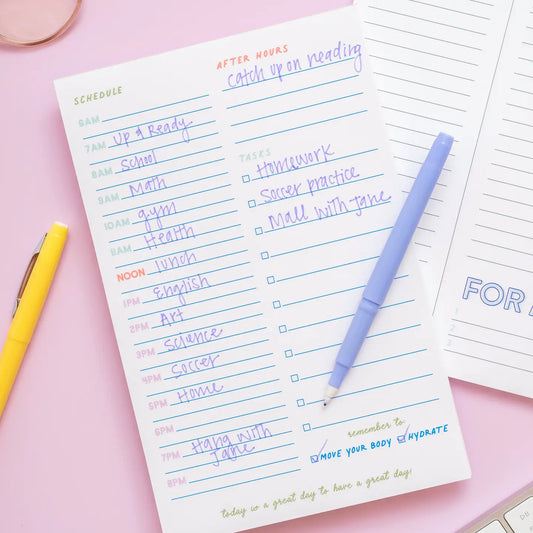 SCHEDULE
6AM
7AM up & Ready
8AM School
9AM Math
10AM gym
11AM Health
NOON lunch
1PM English
2PM Art
3PM Science
4PM Soccer
5PM Home
6PM
7PM Hang with
Jane
8PM
AFTER HOURS
catch up on reading
TASKS
Homework
Soccer practice
Mall with Jane
remember to:
MOVE YOUR BODY HYDRATE
today is a great day to have a great day!
FOR
1
2
3